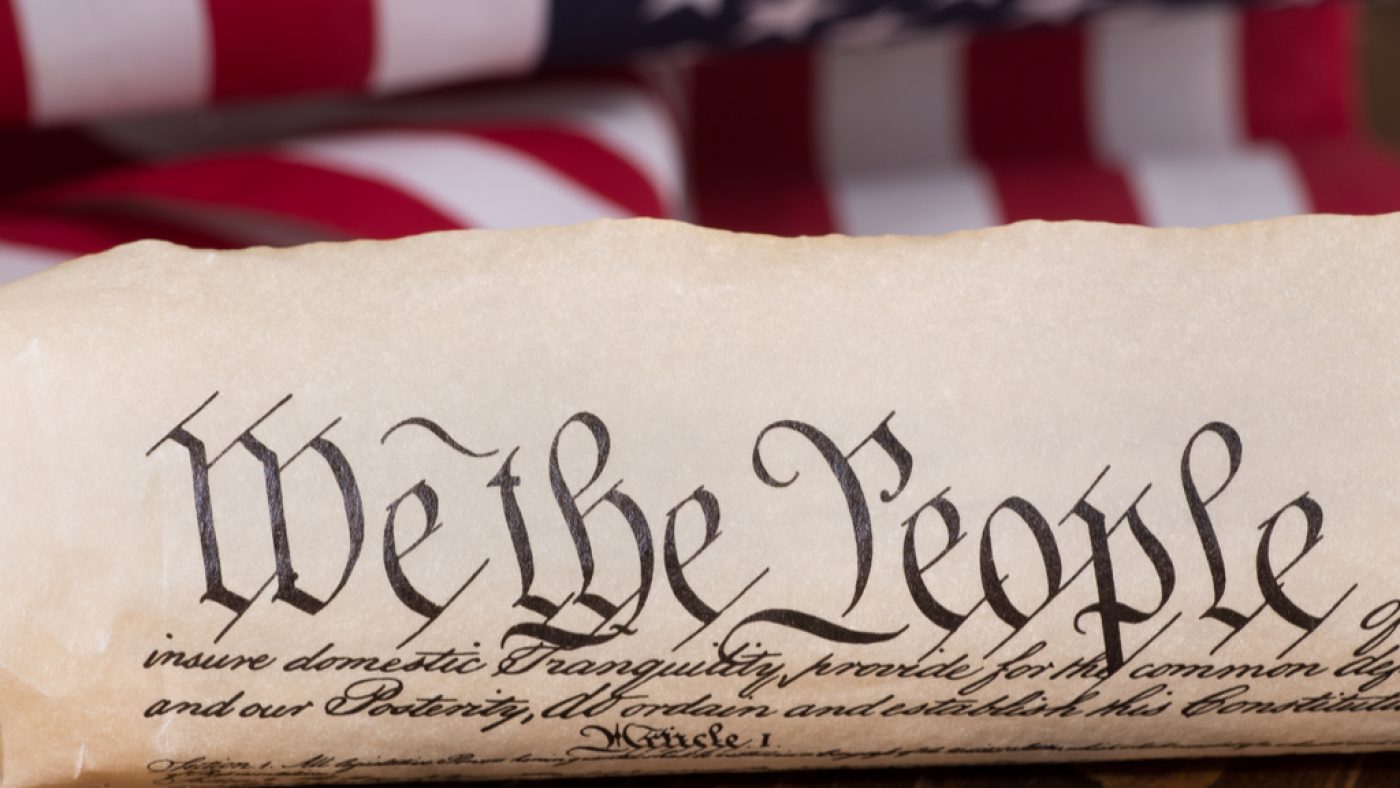 We the People
insure domestic Tranquility, provide for the common
and our Posterity, do ordain and establish this
Article. I.
Section. 1. All legislative Powers